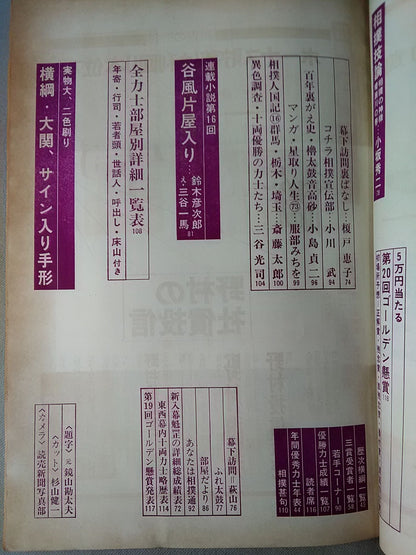 相撲技論
小坂秀二
5万円当たる
第20回ゴールデン懸賞 118
幕下訪問裏ばなし…榎戸惠子 74
コチラ相撲宣伝部…小川武 94
百年裏がえ史・櫓太鼓音高砂…小島貞二 96
マンガ・星取り人生㉓…服部みちを 99
相撲人国記⑯群馬・栃木・埼玉…斎藤太郎 100
異色調査・十両優勝の力士たち…三谷光司 104
連載小説第16回
谷風片屋入り…鈴木彦次郎
え・三谷一馬 81
全力士部屋別詳細一覧表 108
年寄・行司・若者頭・世話人・呼出し・床山付き
実物大、二色刷り
横綱・大関、サイン入り手形
歴次横綱一覧
三賞受賞者一覧
若手コーナー 90
優勝力士成績一覧 107
読者席 116
年間優秀力士年表 44
相撲甚句 110
幕下訪問=萩山 76
ふれ太鼓 77
部屋だより 86
あなたは相撲通 92
新入幕魁罡の詳細総成績表 72
東西幕内十両力士略歴表 114
第19回ゴールデン懸賞発表 117
《題字》元鏡山勘太夫
《カット》杉山健一
《カメラマン》読売新聞写真部